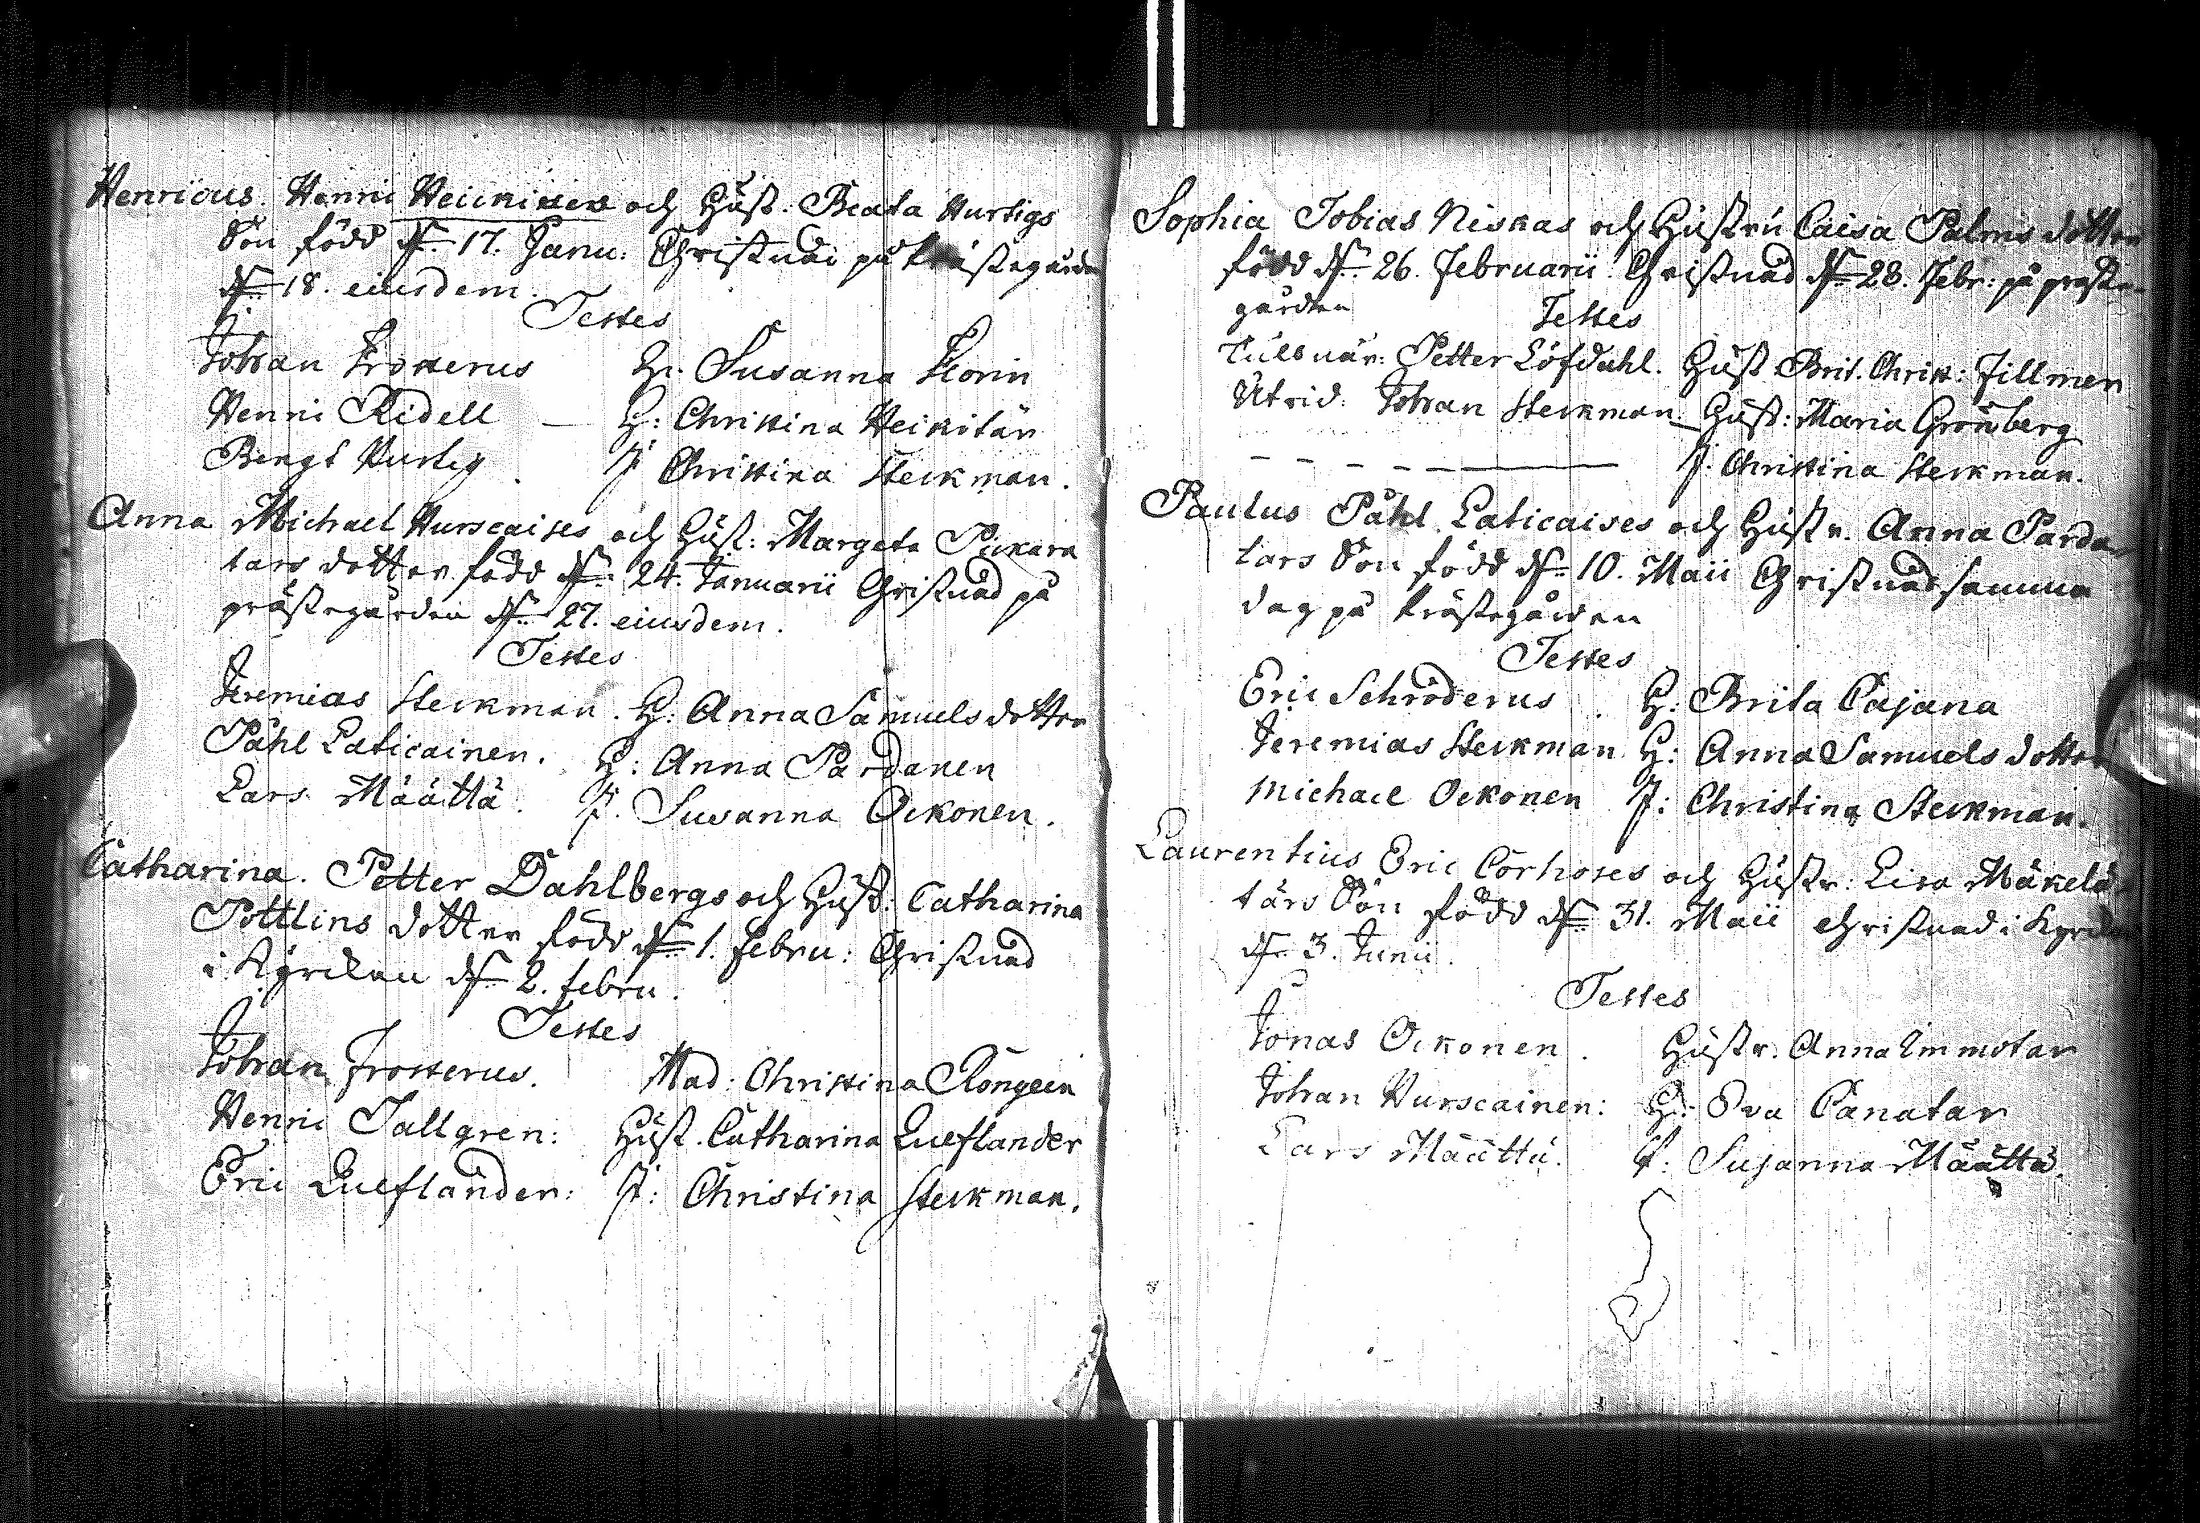 Henricus. Henric Heickises och Hust. Beata Hurtigs
Son född d. 17. Janu: Christnad på Prästegården
d. 18. eiusdem.
Testes
Johan Frosterus H. Susanna Florin
Henric Ridell — H: Christina Heikitär
Bengt Hurtig. P Christina Steckman.
Anna Michael Hurscaises och Hust: Margeta Pickara
tars dotter född d. 24. Januarii Christnad på
prästegården d. 27. eiusdem.
Testes
Jeremias Steckman. H: Anna Samuels dotter
Påhl Laticainen. H: Anna Pardanen
Lars Määttä. P. Susanna Ockonen.
Catharina. Petter Dahlbergs och Hust: Catharina
Pottlins dotter född d. 1. Febru: Christnad
i Kyrckan d. 2. febru.
Testes
Johan Frosterus. Mad: Christina
Henric Tallgren: Hust. Catharina Lueflander
Eric Lueflander: P: Christina Steckman.
Sophia Tobias Niskas och Hustru Caisa Palms dotter
född d. 26. Februarii. Christnad d. 28. Febr: på präste
gården
Testes
Tullnär: Petter Löfdahl. Hust Brit. Christ: Fillmer
Utrid. Johan Steckman. Hust: Maria Grönberg
– – – – — P. Christina Steckman.
Paulus Påhl Laticaises och Hustr. Anna Parda
tars Son född d. 10. Maii Christnad samma
dag på Prästegården
Testes
Eric Schröderus. H: Brita Cajana
Jeremias Steckman H: Anna Samuels dotter
Michael Ockonen P: Christina Steckman.
Laurentius Eric Corhoses och Hustr: Lisa Mäkelä
tärs Son född d. 31. Maii Christnad i Kyrckan
d. 3. Junii.
Testes
Jonas Ockonen. Hustr. Anna Immotar
Johan Hurscainen: H: Eva Canatar
Lars Määttä. P: Susanna Määttä.